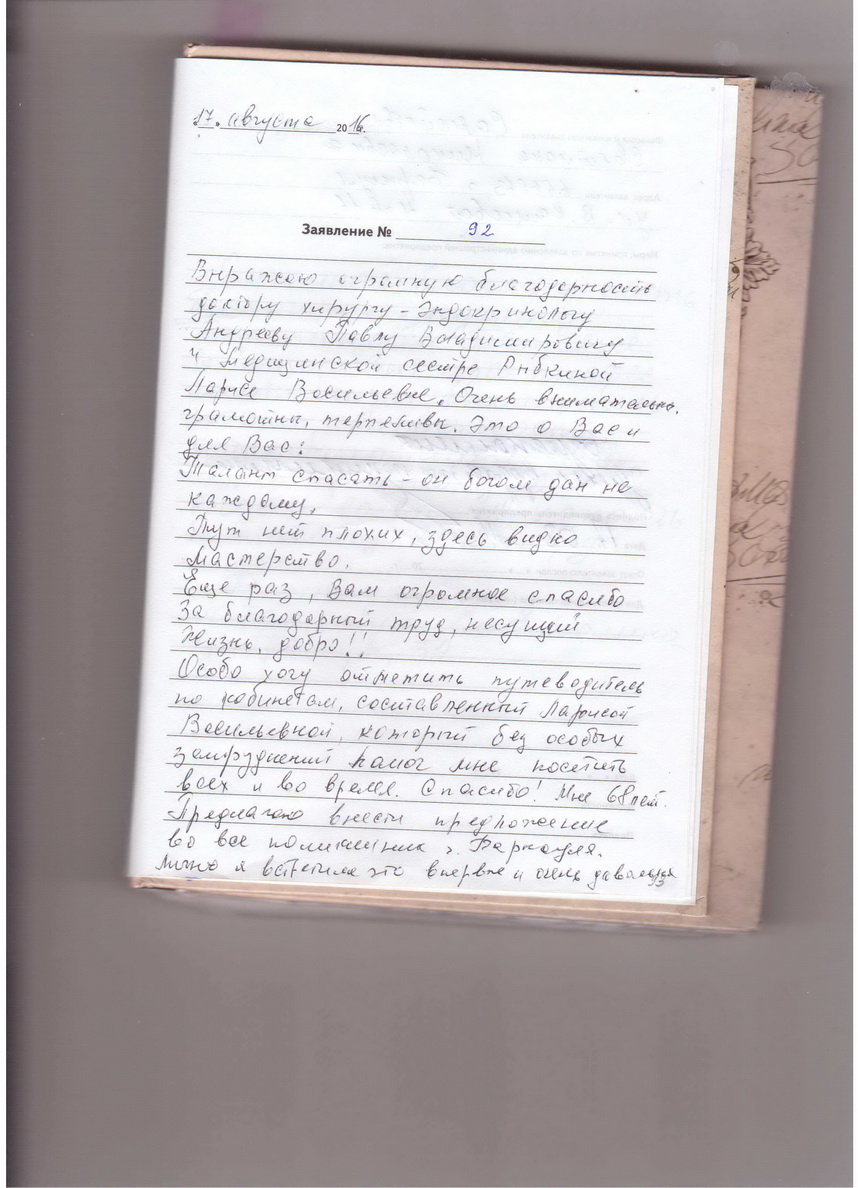 17. августа 2016.
Заявление № 92
Выражаю огромную благодарность
доктору хирургу - эндокринологу
Андрееву Павлу Владимировичу
и медицинской сестре Рыбкиной
Ларисе Васильевне. Очень внимательны,
грамотны, терпеливы. Это о Вас и
для Вас:
Талант спасать - он богом дан не
каждому,
Тут нет плохих, здесь видно
мастерство.
Еще раз, Вам огромное спасибо
За благодарный труд, несущий
Жизнь, добро!!
Особо хочу отметить путеводитель
по кабинетам, составленный Ларисой
Васильевной, который без особых
затруднений помог мне посетить
всех и во время. Спасибо! Мне 68 лет.
Предлагаю внести предложение
во все поликлиники г. Барнаула.
Лично я встретила это впервые и очень
93